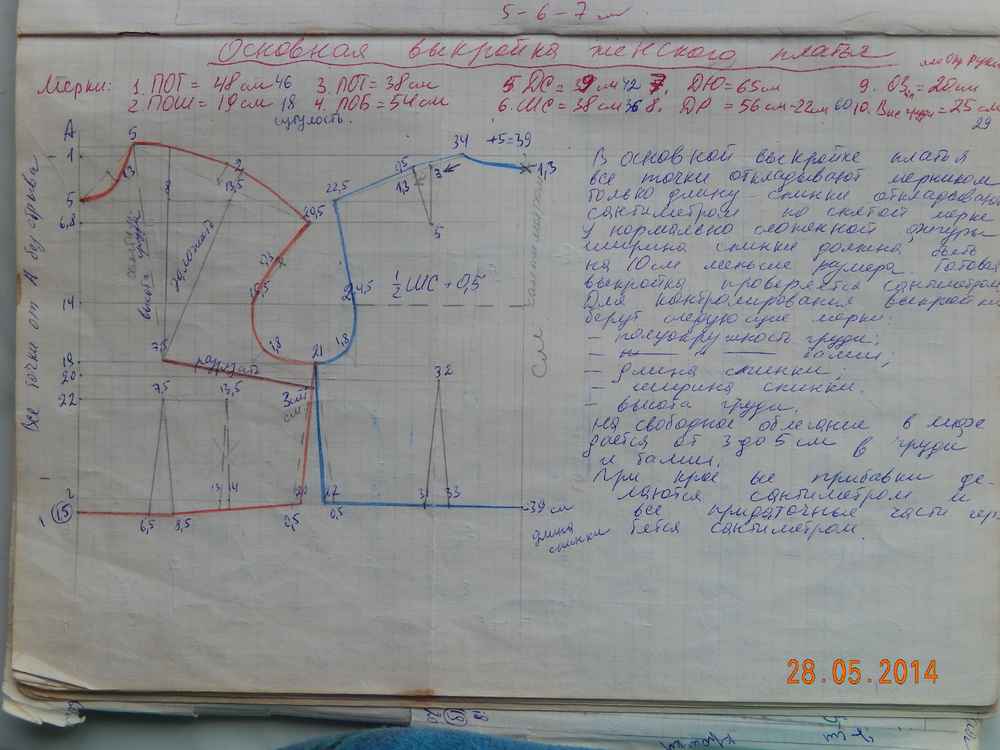 5-6-7 см
Основная выкройка женского платья
Мерки: 1. ПОГ = 48 см 46 3. ПОТ = 38 см 5. ДС = 39 см 42 7. ДЮ = 65 см 9. ОЗ = 20 см
2 ПОШ = 19 см 18 4. ПОБ = 54 см 6. ШС = 38 см 36 8. ДР = 56 см-22 см 60 10. Выс груди = 25 см
29
сутулость.
А
5
34 +5=39
1
1,3
2
0,5
13
13
3
13,5
5
22,5
6,8
20,5
5
Все точки от А без отрыва
высота груди
заложить
сантиметром
½ ШС + 0,5
14
7,5
1,8
21
1,8
19
20
разрезать
32
22
7,5
13,5
3 см
2
13
14
20
22
31
33
15
6,5
8,5
0,5
0,5
39 см
длина
спинки
В основной выкройке платья
все точки откладывают мерником
только длину спинки откладывают
сантиметром по снятой мерке
У нормально сложенной фигуры
ширина спинки должна быть
на 10 см меньше размера. Готовая
выкройка проверяется сантиметром
Для контролирования выкройки
берут следующие мерки:
– полуокружность груди;
– — " — талии;
– длина спинки;
– ширина спинки.
– высота груди.
На свободное облегание в
дается от 3 до 5 см в груди
и талии.
При крое все прибавки де-
лаются сантиметром и
все придаточные части
сантиметром.
28.05.2014